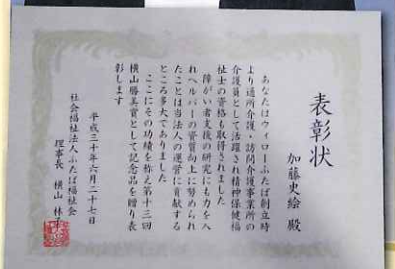 表彰状
加藤史絵 殿
あなたはウィローふたば創立時
より通所介護・訪問介護事業所の
介護員として活躍され精神保健福
祉士の資格も取得されました
障がい者支援の研究にも力を入
れヘルパーの資質向上に努められ
たことは当法人の運営に貢献する
ところ多大でありました
ここにその功績を称え第十三回
横山勝美賞として記念品を贈り表
彰します
平成三十年六月二十七日
社会福祉法人ふたば福祉会
理事長 横山 林